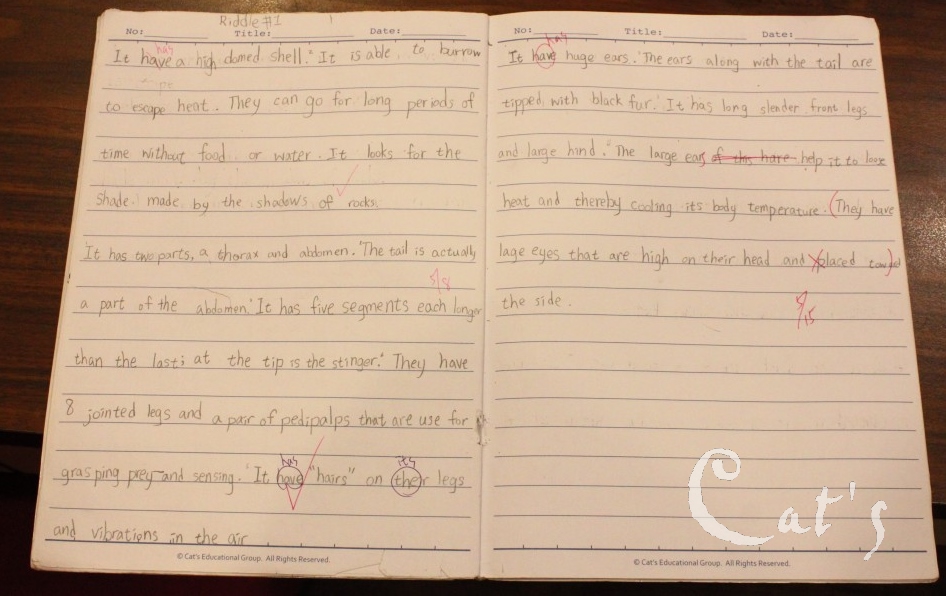 Riddle #1
No: Title: Date:
has
It have a high domed shell. It is able to burrow
to escape heat. They can go for long periods of
time without food or water. It looks for the
shade made by the shadows of rocks.
It has two parts, a thorax and abdomen. The tail is actually
5/8
a part of the abdomen. It has five segments each longer
than the last; at the tip is the stinger. They have
8 jointed legs and a pair of pedipalps that are use for
has its
grasping prey and sensing. It have "hairs" on their legs
and vibrations in the air
© Cat's Educational Group. All Rights Reserved.
No: Title: Date:
has
It have huge ears. The ears along with the tail are
tipped with black fur. It has long slender front legs
and large hind. The large ears of this hare help it to lose
heat and thereby cooling its body temperature. (They have
lage eyes that are high on their head and placed toward)
the side.
5/15
© Cat's Educational Group. All Rights Reserved.
Cat's